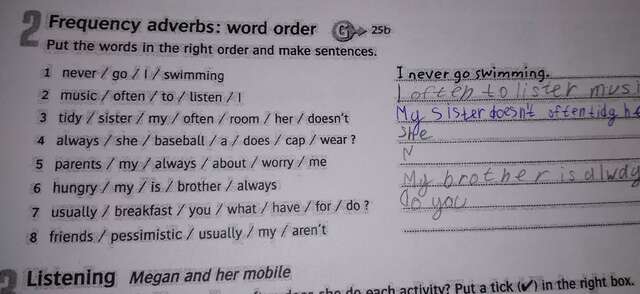 2 Frequency adverbs: word order G 25b
Put the words in the right order and make sentences.
1 never / go / I / swimming
I never go swimming.
2 music / often / to / listen / I
I often to lister musi
3 tidy / sister / my / often / room / her / doesn't
My sister doesn't often tidg he
4 always / she / baseball / a / does / cap / wear ?
She
5 parents / my / always / about / worry / me
N
6 hungry / my / is / brother / always
My brother is alwdy
7 usually / breakfast / you / what / have / for / do ?
do you
8 friends / pessimistic / usually / my / aren't
3 Listening Megan and her mobile
she do each activity? Put a tick (✓) in the right box.